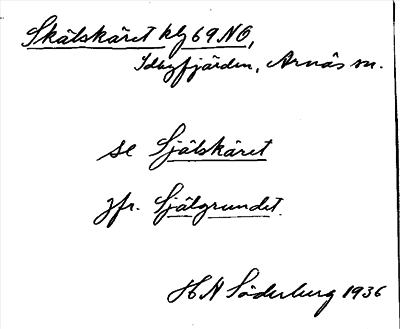 Skälskäret klj 69 NO,
Idbyfjärden, Arnäs sn.
se Själskäret
jfr. Själgrundet.
H N Söderberg 1936